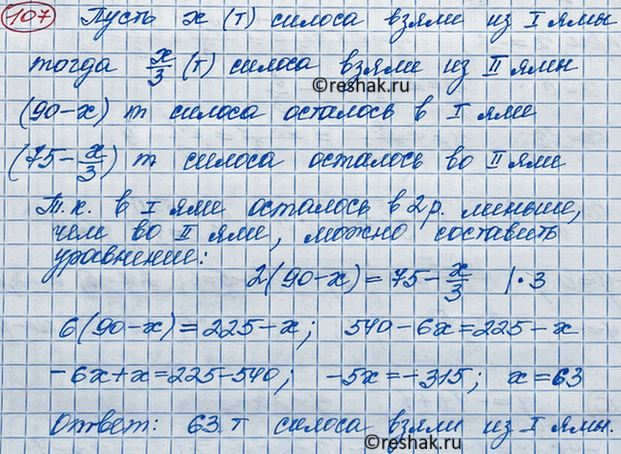 107 Пусть x (т) силоса взяли из I ямы
тогда x/3 (т) силоса взяли из II ямы
©reshak.ru
(90-x) т силоса осталось в I яме
(75-x/3) т силоса осталось во II яме
Т.к. в I яме осталось в 2р. меньше,
чем во II яме, можно составить
уравнение:
2(90-x)=75-x/3 |·3
6(90-x)=225-x; 540-6x=225-x
-6x+x=225-540; -5x=-315; x=63
Ответ: 63 т силоса взяли из I ямы.
©reshak.ru